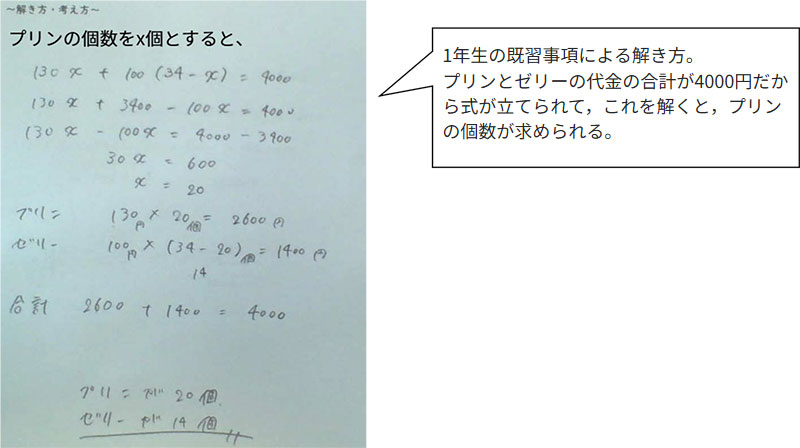 ～解き方・考え方～
プリンの個数をx個とすると、
130x + 100(34-x) = 4000
130x + 3400 - 100x = 4000
130x - 100x = 4000 - 3400
30x = 600
x = 20
プリン 130円 × 20個 = 2600円
ゼリー 100円 × (34-20)個 = 1400円
14
合計 2600 + 1400 = 4000
プリンが 20個
ゼリーが 14個
1年生の既習事項による解き方。
プリンとゼリーの代金の合計が4000円だか
ら式が立てられて，これを解くと，プリン
の個数が求められる。